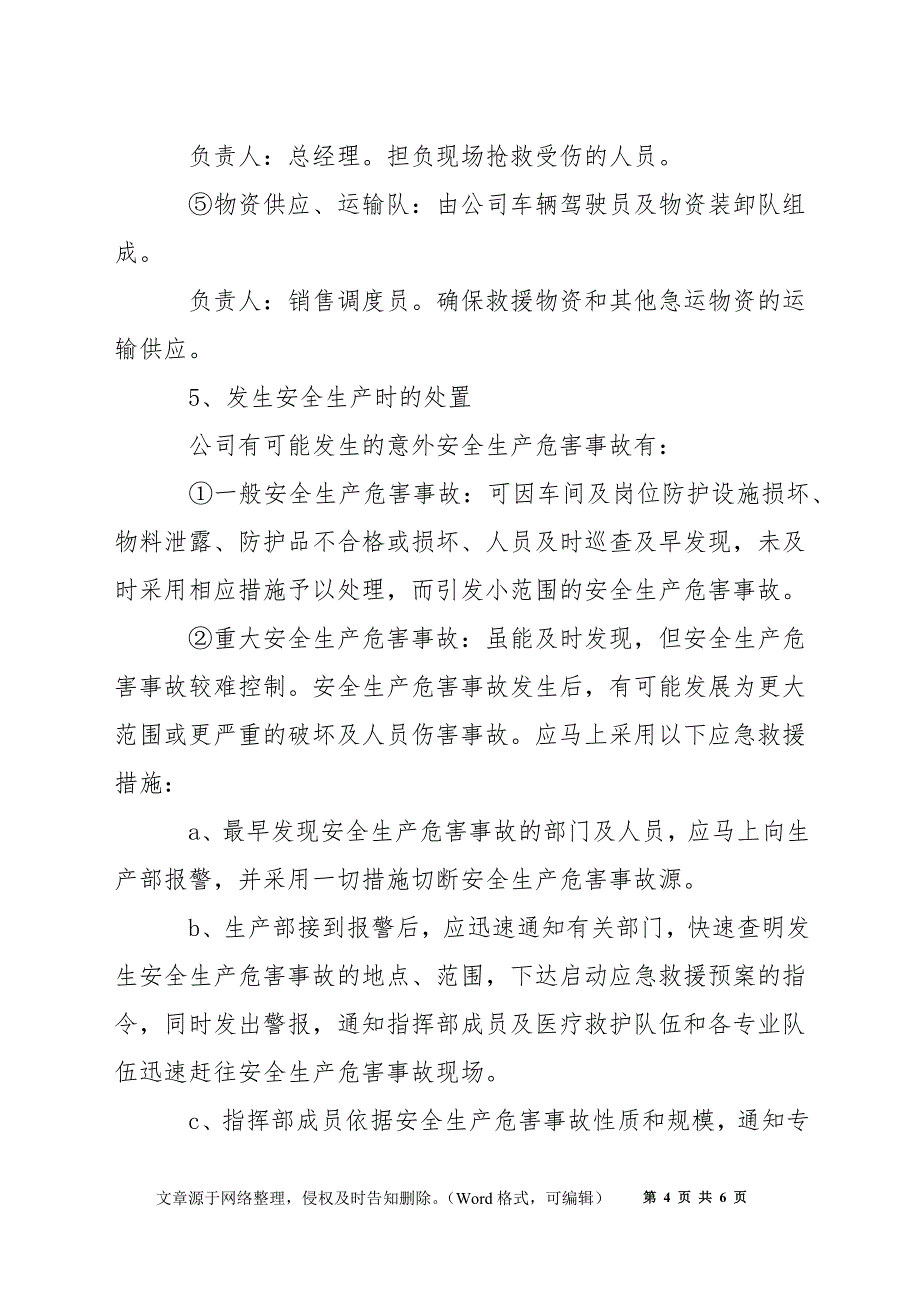 负责人：总经理。担负现场抢救受伤的人员。
⑤物资供应、运输队：由公司车辆驾驶员及物资装卸队组
成。
负责人：销售调度员。确保救援物资和其他急运物资的运
输供应。
5、发生安全生产时的处置
公司有可能发生的意外安全生产危害事故有：
①一般安全生产危害事故：可因车间及岗位防护设施损坏、
物料泄露、防护品不合格或损坏、人员及时巡查及早发现，未及
时采用相应措施予以处理，而引发小范围的安全生产危害事故。
②重大安全生产危害事故：虽能及时发现，但安全生产危
害事故较难控制。安全生产危害事故发生后，有可能发展为更大
范围或更严重的破坏及人员伤害事故。应马上采用以下应急救援
措施：
a、最早发现安全生产危害事故的部门及人员，应马上向生
产部报警，并采用一切措施切断安全生产危害事故源。
b、生产部接到报警后，应迅速通知有关部门，快速查明发
生安全生产危害事故的地点、范围，下达启动应急救援预案的指
令，同时发出警报，通知指挥部成员及医疗救护队伍和各专业队
伍迅速赶往安全生产危害事故现场。
c、指挥部成员依据安全生产危害事故性质和规模，通知专
文章源于网络整理，侵权及时告知删除。（Word 格式，可编辑） 第 4 页 共 6 页